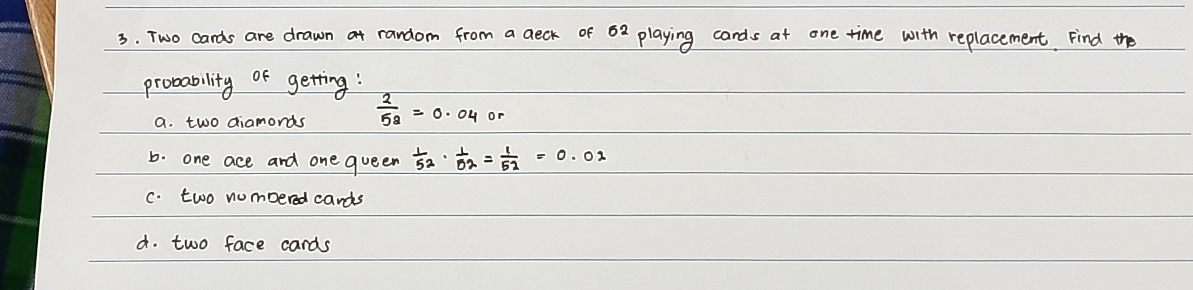 3. Two cards are drawn at random from a deck of 52 playing cards at one time with replacement. Find the
probability of getting:
a. two diamonds 2/52 = 0.04 or
b. one ace and one queen 1/52 · 1/52 = 1/52 = 0.02
c. two numbered cards
d. two face cards